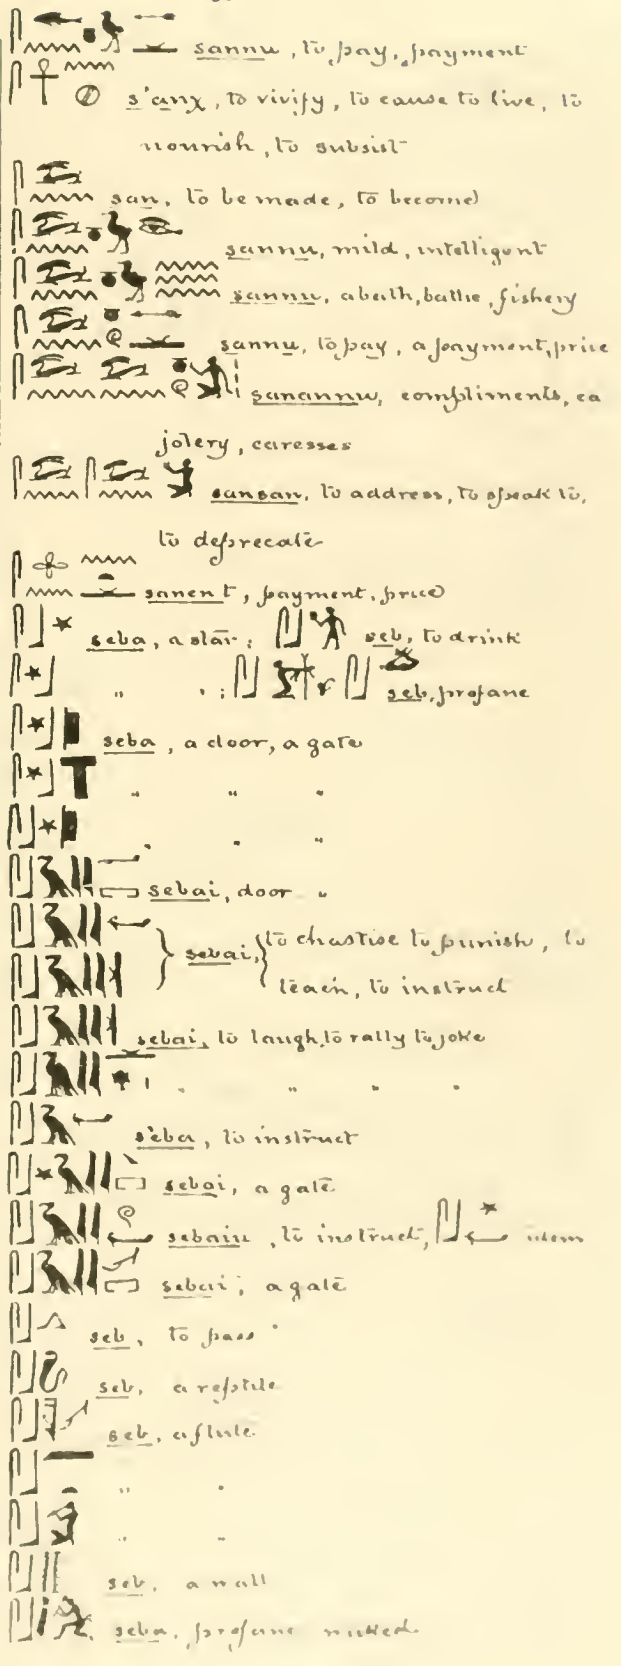 sannu, to pay, payment
s'anχ, to vivify, to cause to live, to
nourish, to subsist
san, to be made, to become
sannu, mild, intelligent
sannu, a bath, bathe, fishery
sannu, to pay, a payment, price
sanannu, compliments, ca
jolery, caresses
sansan, to address, to speak to,
to deprecate
sanen t, payment, price
seba, a star; seb, to drink
" " ; seb, profane
seba, a door, a gate
" " "
" " "
sebai, door "
sebai, to chastise to punish, to
teach, to instruct
sebai, to laugh, to rally to joke
" " " "
s'eba, to instruct
sebai, a gate
sebaiu, to instruct, idem
sebai; a gate
seb, to pass
seb, a reptile
seb, a flute
" "
" "
seb, a wall
seba, profane